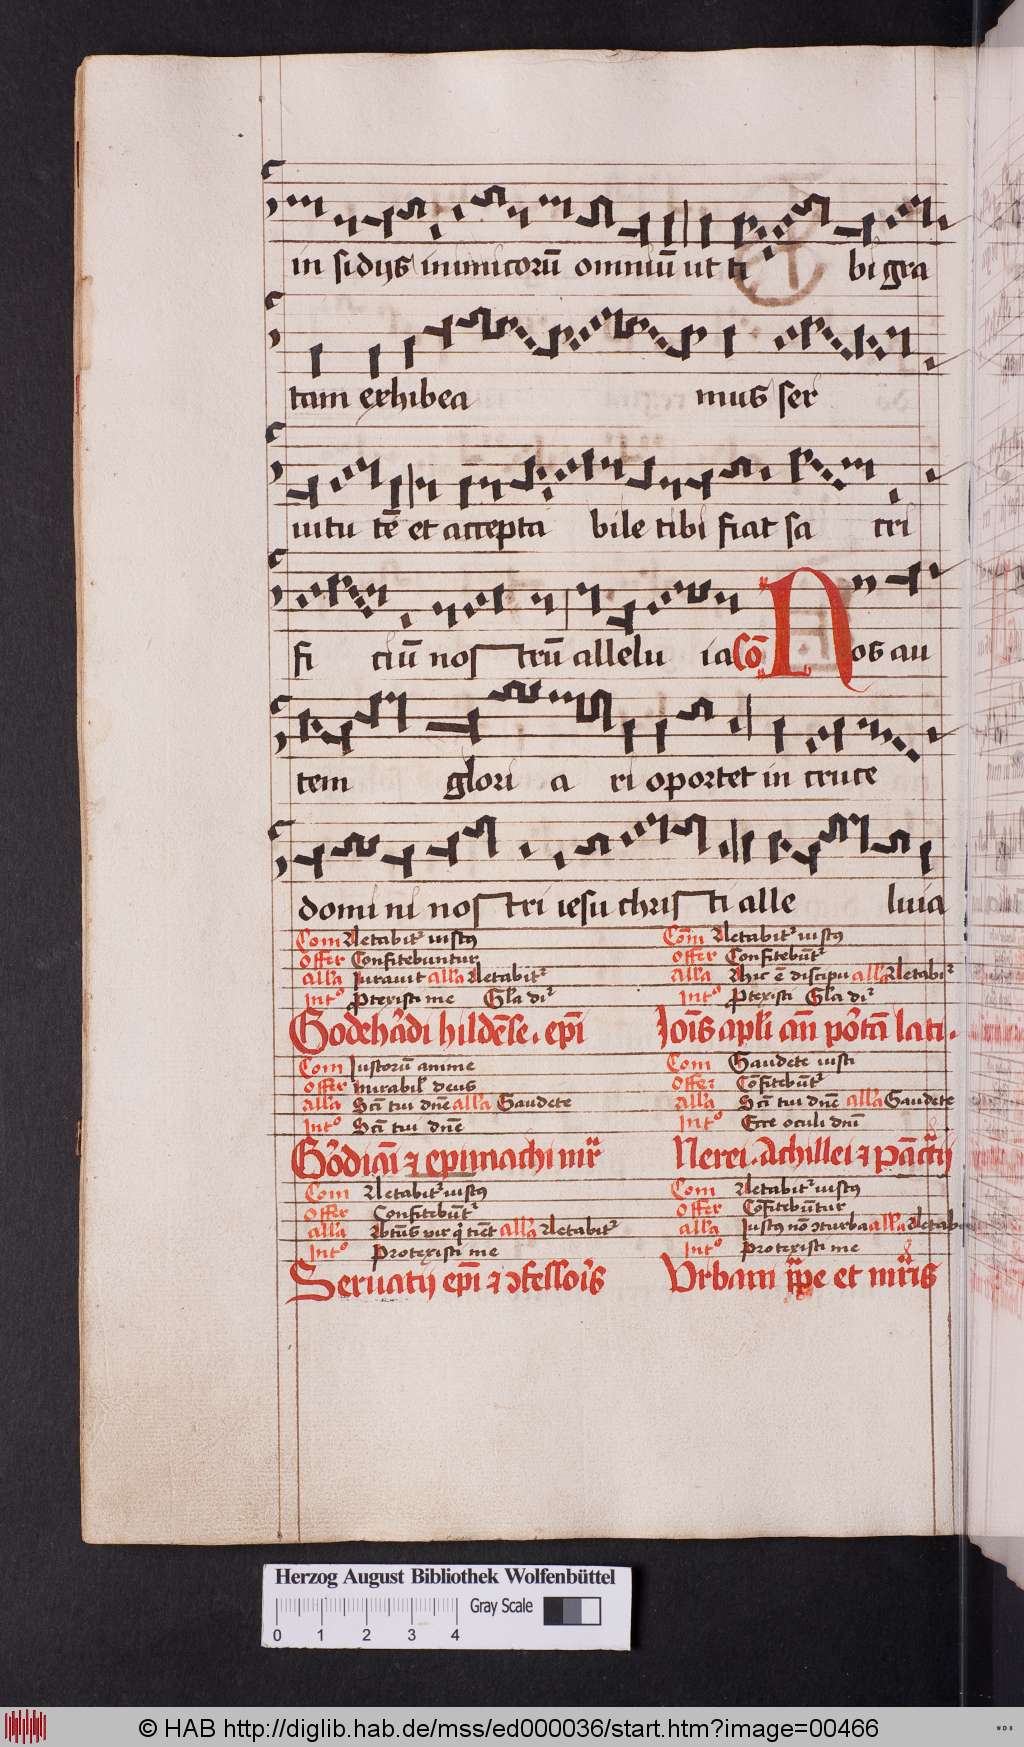 in sidijs inimicorū omniū ut ti bi gra
tam exhibea mus ser
uitu tē et accepta bile tibi fiat sa cri
fi ciū nos trū allelu ia Cō Nos au
tem glori a ri oportet in cruce
domi ni nos tri iesu christi alle luia
Com Letabitᷣ iustꝰ
Offer Confitebuntur
Alla Iurauit alla Letabitᷣ
Intº Ptexisti me Gla diᷣ
Godehādi hildēse. epī
Com Iustorū anime
Offer mirabil deus
Alla Scī tui dnē alla Gaudete
Intº Scī tui dnē
Gordiāi ⁊ epimachi mrͬ
Com Letabitᷣ iustꝰ
Offer Confitebūtᷣ
Alla Btūs vir qͥ timēt alla Letabitᷣ
Intº Protexisti me
Seruatij epī ⁊ ↄfessoīs
Com Letabitᷣ iustꝰ
Offer Confitebūtᷣ
Alla Hic ē discipu alla Letabiᷣ
Intº Ptexisti Gla diᷣ
Joīs apli an portā lati.
Com Gaudete iusti
Offer Cōfitebūtᷣ
Alla Scī tui dnē alla Gaudete
Intº Ecce oculi dnī
Nerei. Achillei ⁊ pācͣtij
Com Letabitᷣ iustꝰ
Offer Cōfitebūtur
Alla Iustꝰ nō ↄturba alla Letab
Intº Protexisti me
Vrbani ppe et mrͬis
Herzog August Bibliothek Wolfenbüttel
Gray Scale
0 1 2 3 4
© HAB http://diglib.hab.de/mss/ed000036/start.htm?image=00466